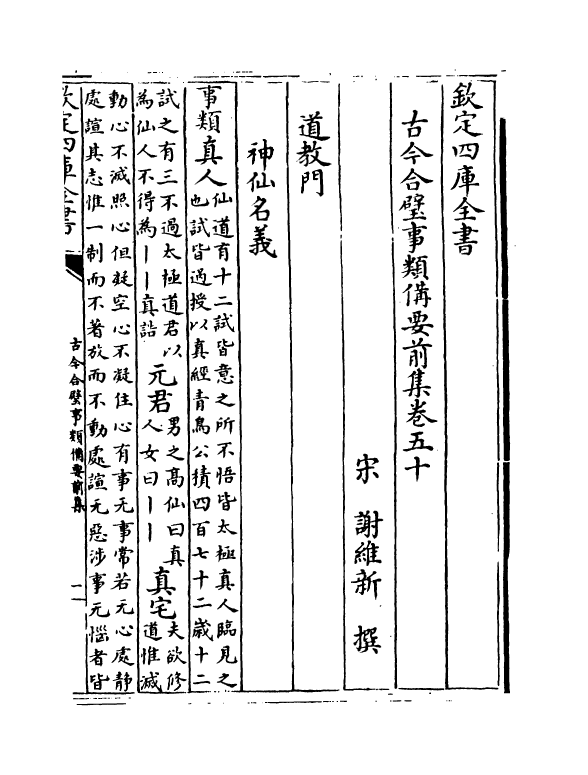 欽定四庫全書
古今合璧事類備要前集卷五十
宋 謝維新 撰
道教門
神仙名義
事類真人
仙道有十二試皆意之所不悟皆太極真人臨見之
也試皆過授以真經青烏公積四百七十二歲十二
試之有三不過太極道君以
為仙人不得為丨丨真誥
元君
男之高仙曰真
人女曰丨丨
真宅
夫欲修
道惟滅
動心不滅照心但凝空心不凝住心有事无事常若无心處靜
處諠其志惟一制而不著放而不動處諠无惡涉事无惱者皆
欽定四庫全書
古今合璧事類備要前集
一